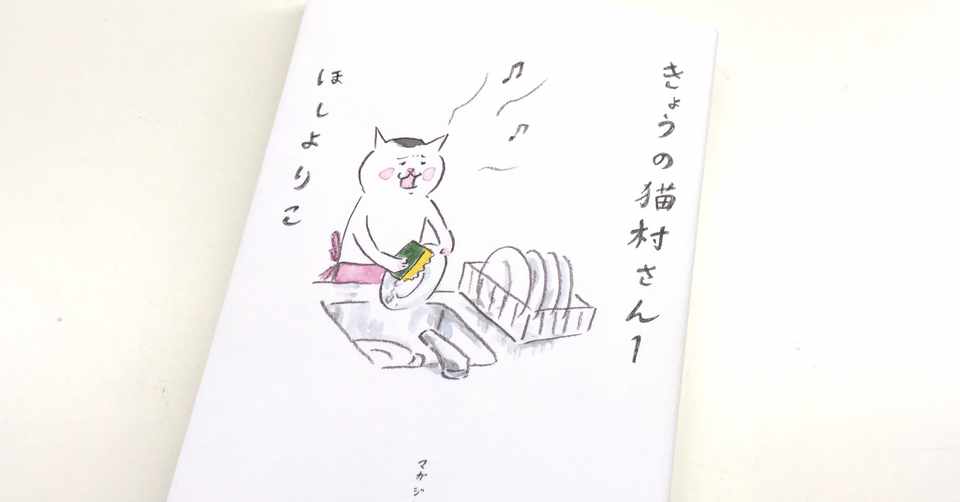 きょうの猫村さん1
ほしよりこ
マガジ